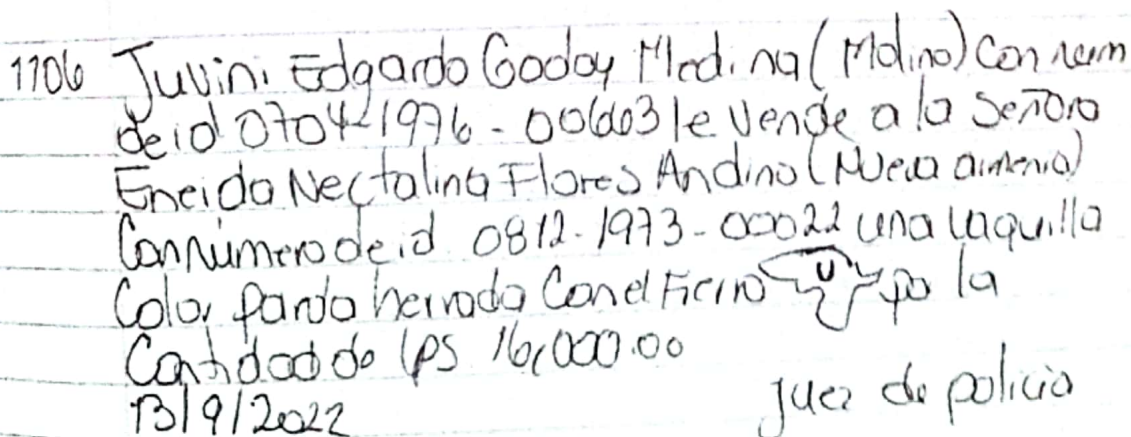 1106 Juvini Edgardo Godoy Medina (Molino) Con num
de id 0704-1976-00663 le vende a la Señora
Eneida Nectalina Flores Andino (Nueva armenia)
Con número de id. 0812-1973-00022 una vaquilla
Color pardo herrada Con el Fierro por la
Cantidad de Lps 16,000.00
13/9/2022 juez de policia